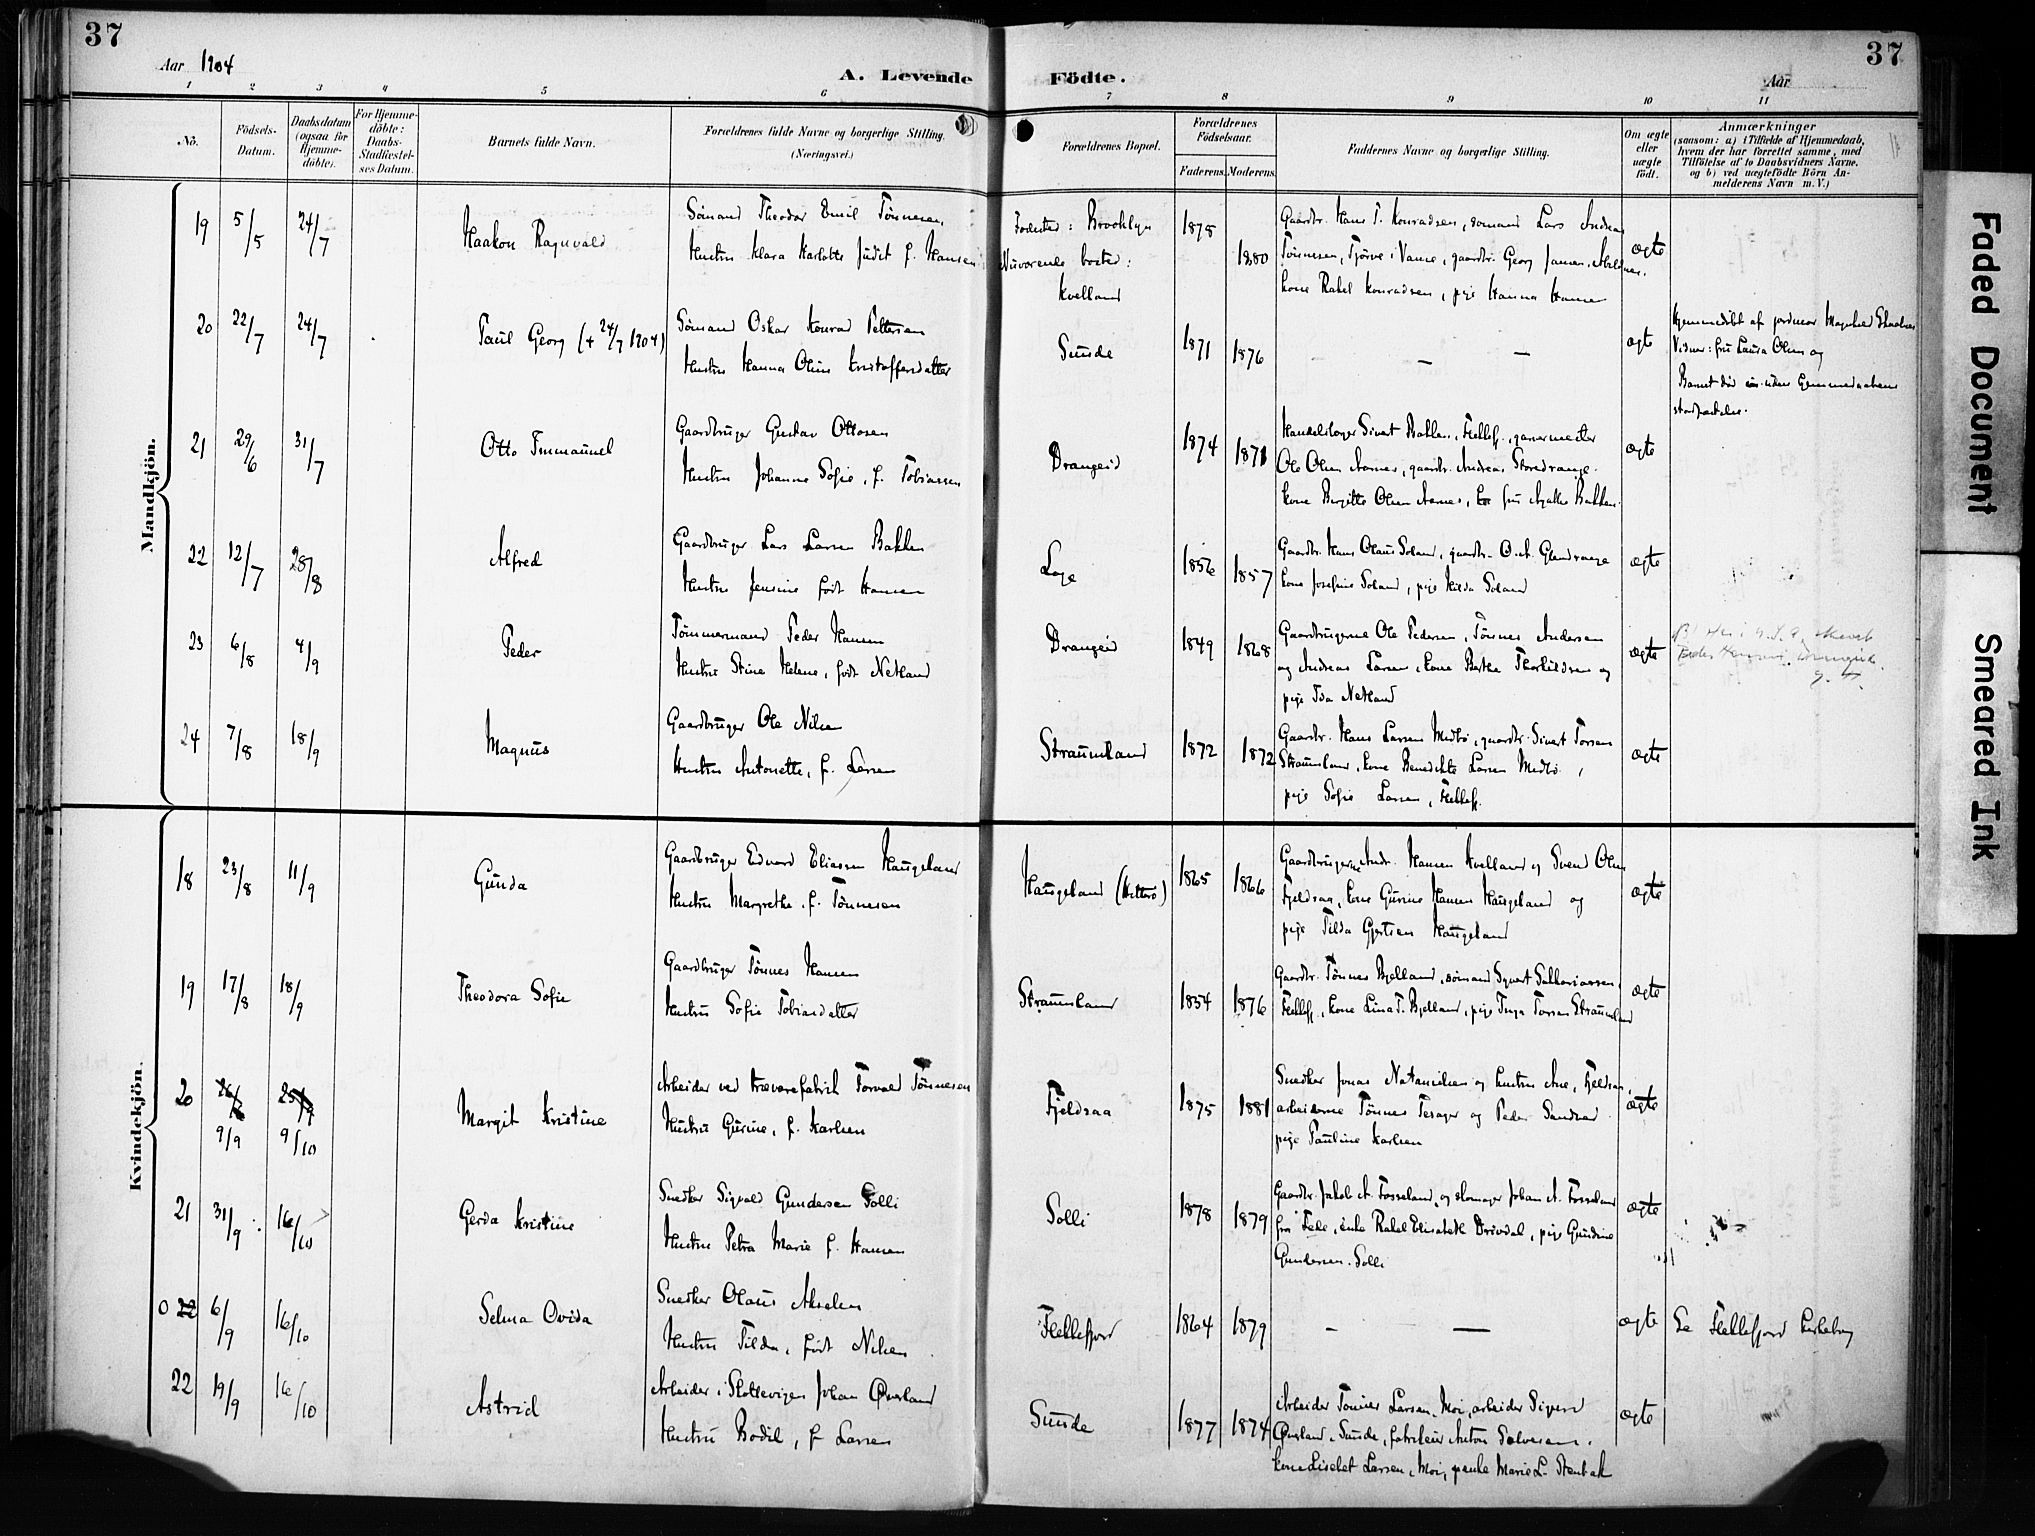 37
37
Aar 1904
A. Levende Födte.
Aar
1 2 3 4 5 6 7 8 9 10 11
No.
Födsels-Datum.
Daabsdatum (ogsaa for Hjemmedöbte).
For Hjemmedöbte: Daabs-Stadfæstelses Datum.
Barnets fulde Navn.
Forældrenes fulde Navne og borgerlige Stilling. (Næringsvei.)
Forældrenes Bopæl.
Forældrenes Födselsaar.
Faderens. Moderens.
Faddernes Navne og borgerlige Stilling.
Om ægte eller uægte födt.
Anmærkninger
(saasom: a) i Tilfælde af Hjemmedaab,
hvem der har forrettet samme, med
Tilföielse af to Daabsvidners Navne,
og b) ved uægtefödte Börn Anmelderens Navn m. V.)
Mandkjön.
19 5/5 24/7 Haakon Ragnvald
Sömand Theodor Emil Tönnesen,
Hustru Klara Karlotte Judit f. Hansen
Fødested: Brooklyn
Nuværende bosted:
Kvelland
1878 1880
Gaardbr. Hans T. Konradsen, sömand Lars Andreas
Tönnesen, Tjörve i Vanse, gaardbr. Georg Jansen, Abelnes,
kone Rakel Konradsen, pige Hanna Hansen
ægte
20 22/7 24/7 Paul Georg (+ 24/7 1904)
Sömand Oskar Konrad Pettersen
Hustru Hanna Oline Kristoffersdatter
Sunde 1871 1876 — — — ægte
Hjemmedöbt af jordmor
Vidner: fru Laura Olsen og
Barnet död
21 29/6 31/7 Otto Immanuel
Gaardbruger Gustav Ottosen
Hustru Johanne Sofie, f. Tobiassen
Drangeid 1874 1871
Handelsborger Sivert Bakken, Flekkef., garvermester
Ole Olsen Aames, gaardbr. Andreas Storedrange,
kone Birgitte Olsen Aames, fru Bakken.
ægte
22 12/7 28/8 Alfred
Gaardbruger Lars Larsen Bakken
Hustru Jensine födt Hansen
Loge 1856 1857
Gaardbr. Hans Olaus Soland, gaardbr. O. A. Glendrange
kone Josefine Soland, pige Hilda Soland
ægte
23 6/8 4/9 Peder
Tömmermand Peder Hansen
Hustru Stine Helene, födt Netland
Drangeid 1849 1868
Gaardbrugerne Ole Pedersen, Tönnes Andersen
og Andreas Larsen, kone Berthe Thorkildsen og
pige Ida Netland
ægte
24 7/8 18/9 Magnus
Gaardbruger Ole Nilsen
Hustru Antonette, f. Larsen
Straumland 1872 1872
Gaardbr. Hans Larsen Midbö, gaardbr. Sivert Torsen
Straumland, kone Benedikte Larsen Midbö,
pige Sofie Larsen, Flekkef.
ægte
Kvindekjön.
18 23/8 11/9 Gunda
Gaardbruger Edvard Eliassen Haugeland
Hustru Margrethe f. Tönnesen
Haugeland (Hitterö) 1865 1866
Gaardbrugerne Andr. Hansen Kvelland og Svend Olsen
Fjeldsaa, kone Gurine Hansen Haugeland og
pige Tilda Gjertsen Haugeland
ægte
19 17/8 18/9 Theodora Sofie
Gaardbruger Tönnes Hansen
Hustru Sofie Tobiasdatter
Straumland 1854 1876
Gaardbr. Tönnes Bjelland, sömand Sigvart Sakkariassen,
Flekkef., kone Lina T. Bjelland, pige Inga Torsen Straumland
ægte
20 9/9 9/10 Margit Kristine
Arbeider ved trævarefabrik Torvald Tönnesen
Hustru Gurine, f. Karlsen
Fjeldsaa 1875 1881
Snedker Jonas Natanielsen og hustru Ane, Fjeldsaa,
arbeiderne Tönnes Tesager og Peder Sandvad
pige Pauline Karlsen
ægte
21 31/9 16/10 Gerda Kristine
Snedker Sigvald Gundersen Solli
Hustru Petra Marie f. Hansen
Solli 1878 1879
Gaardbr. Jakob A. Fosseland, og skomager Johan A. Fosseland
fra Fede, enke Rakel Elisabeth Drivdal, pige Gundine
Gundersen Solli
ægte
0 22 6/9 16/10 Selma Ovida
Snedker Olaus Akselsen
Hustru Tilda, födt Nilsen
Flekkefjord 1864 1879 — — ægte
Se Flekkefjord kirkebog
22 19/9 16/10 Astrid
Arbeider i Slottevigen Johan Översland
Hustru Bodil, f. Larsen
Sunde 1877 1874
Arbeider Tönnes Larsen, Moi, arbeider Sigurd
Översland, Sunde, fabrikeier Anton Salvesen,
kone Lisebet Larsen, Moi, Marie L. Stenbak
ægte
Faded Document
Smeared Ink